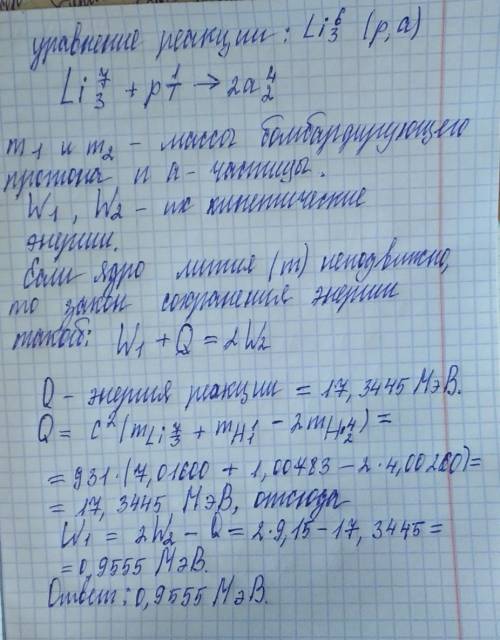 уравнение реакции: Li ⁶₃ (p, a)
Li ⁷₃ + p ¹₁ → 2a ⁴₂
m₁ и m₂ - массы бомбардирующего
протона и a - частицы.
W₁, W₂ - их кинетические
энергии.
Если ядро лития (m) неподвижно,
то закон сохранения энергии
такой: W₁ + Q = 2W₂
Q - энергия реакции = 17,3445 МэВ.
Q = c² (m Li ⁷₃ + m H ¹₁ - 2m H ⁴₂) =
= 931·(7,01600 + 1,00783 - 2·4,00260) =
= 17,3445 МэВ, отсюда
W₁ = 2W₂ - Q = 2·9,15 - 17,3445 =
= 0,9555 МэВ.
Ответ: 0,9555 МэВ.